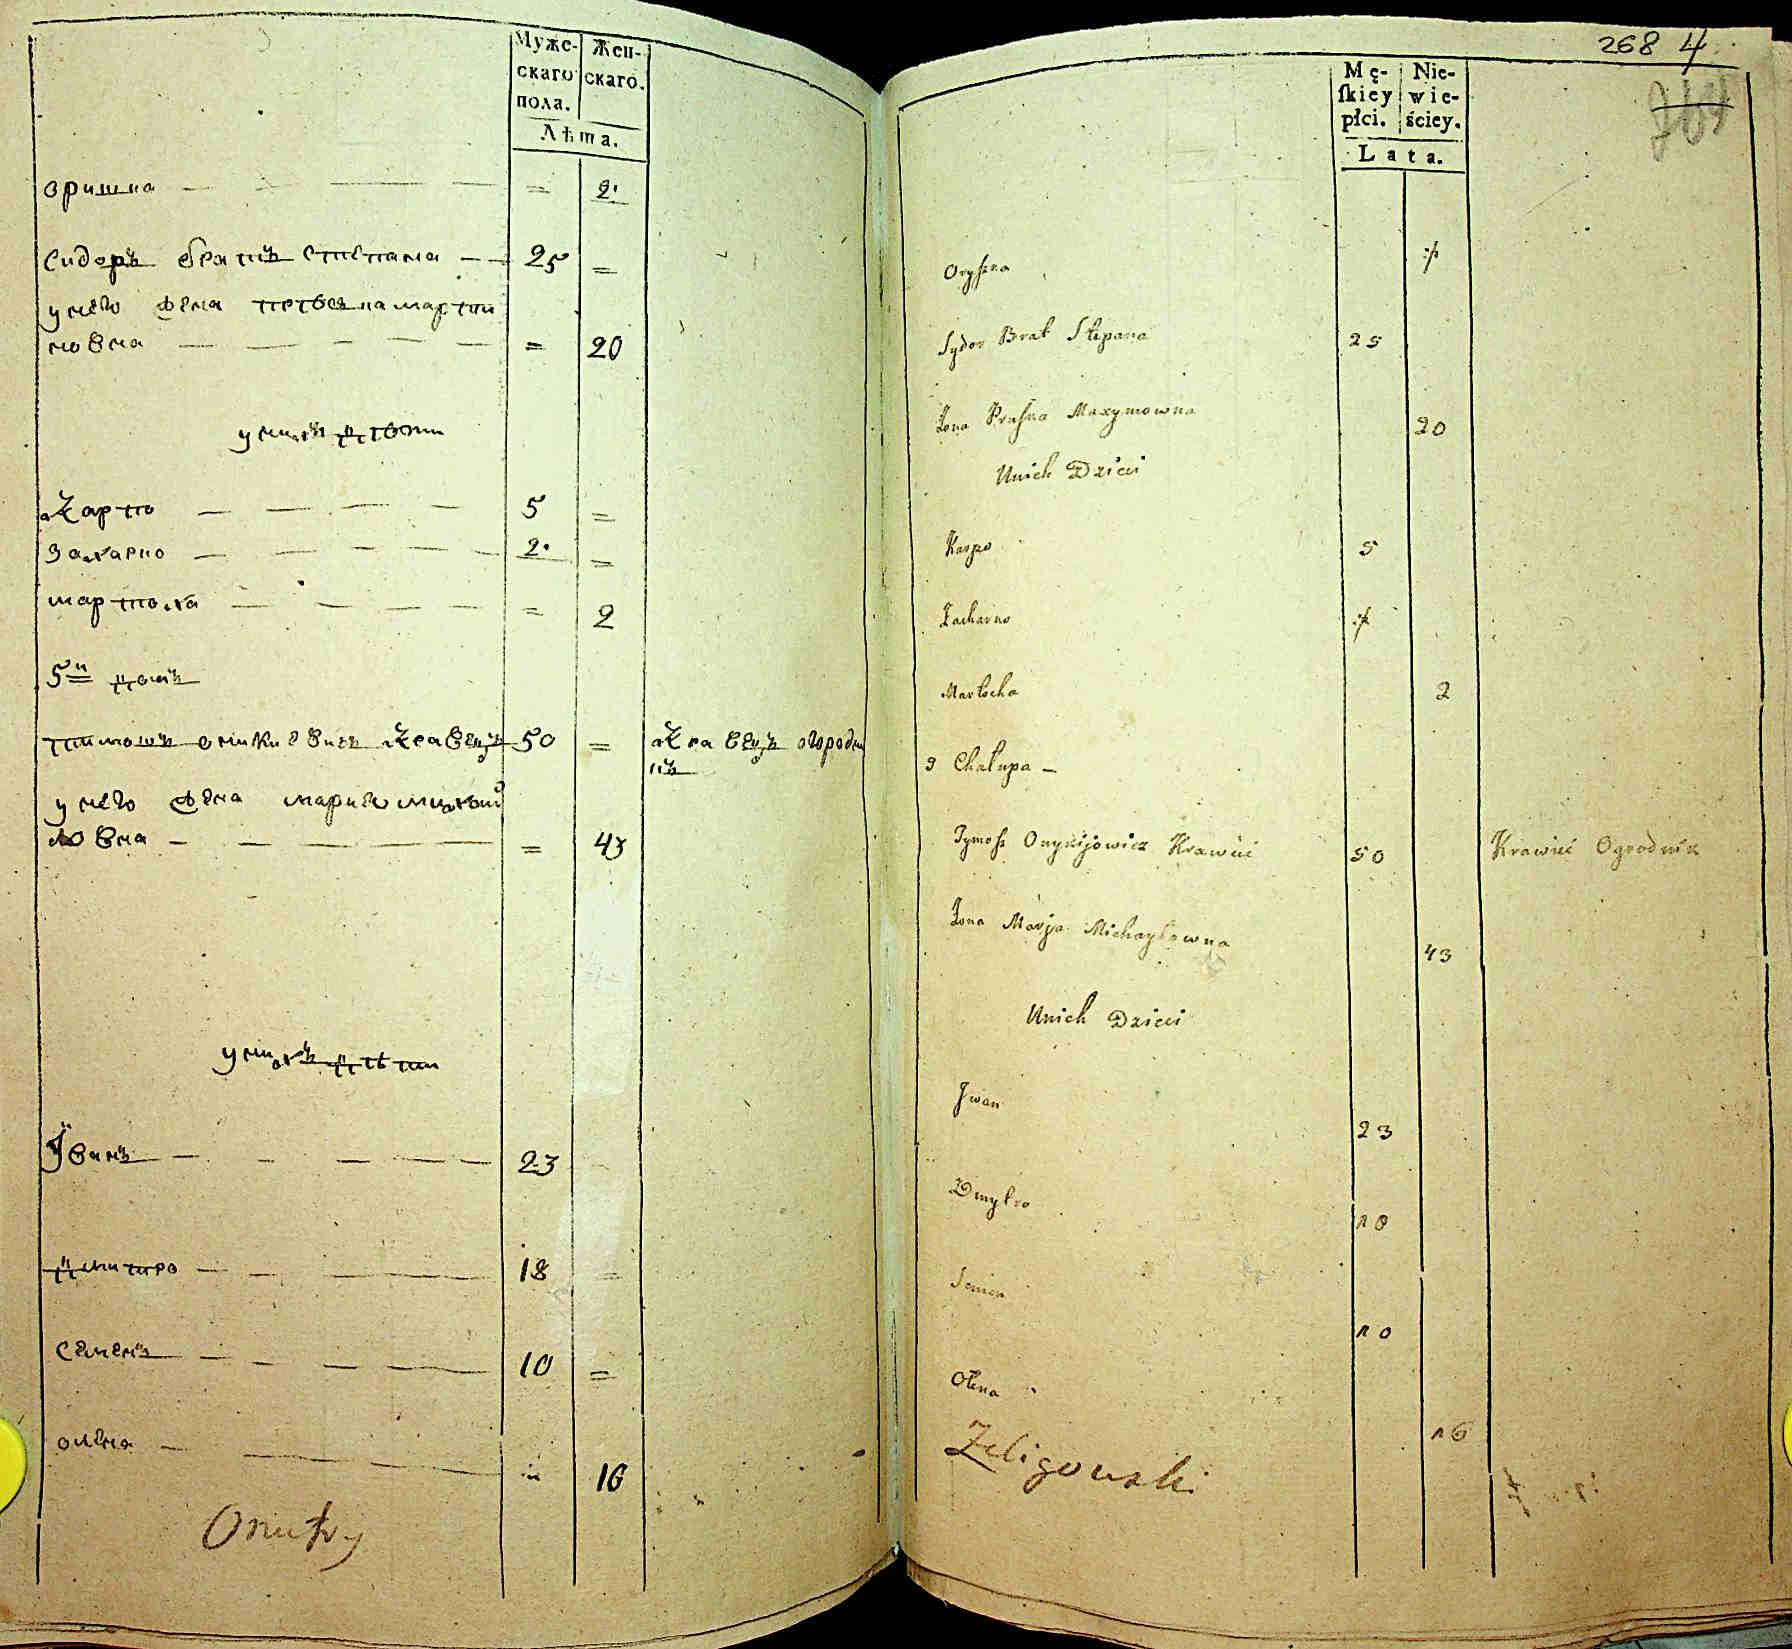 Муже-
скаго
пола.
Жен-
скаго.
Лѣта.
оришка — — — — = 2.
Сидоръ братъ степана — — 25 =
у него жена
новна — — — — = 20
у нихъ дѣти
Карпо — — — — 5 =
Захарко — — — — 2. =
мартоха — — — — = 2
5й домъ
тимошъ Кравецъ 50 = Кравецъ огородни
къ
у него жена мария михай
ловна — — — — = 43
у нихъ дѣти
Іванъ — — — — 23
дмитро — — — — 18 =
Семенъ — — — — 10 =
олена — — = 16
268 4
Mę-
ſkiey
płci.
Nie-
wie-
ściey.
Lata.
Oryszka
Sydor Brat Stepana 25
Żona Maxymowna 20
Unich Dzieci
Karpo 5
Zacharko
Martocha 2
Chałupa —
Tymosz Krawiec 50 Krawieć Ogrodnik
Żona Marja Michayłowna 43
Unich Dzieci
Jwan 23
Dmytro 18
Semen 10
Ołena 16
Zeligowski